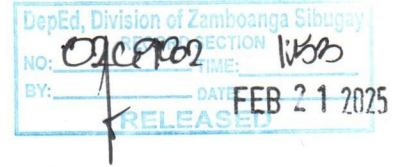 DepEd, Division of Zamboanga Sibugay
RECORD SECTION
NO: TIME:
BY: DATE FEB 21 2025
RELEASED